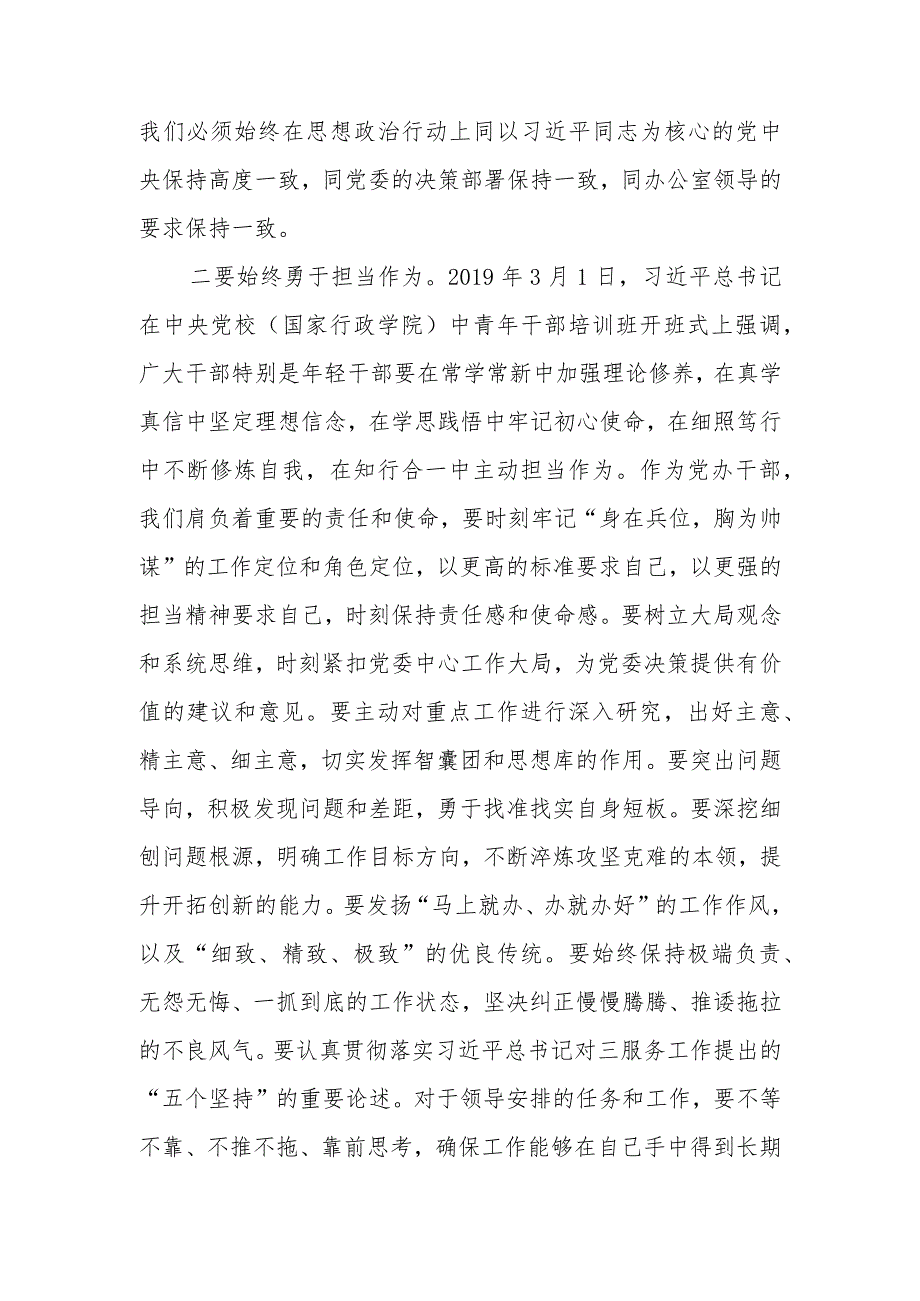 我们必须始终在思想政治行动上同以习近平同志为核心的党中
央保持高度一致，同党委的决策部署保持一致，同办公室领导的
要求保持一致。
二要始终勇于担当作为。2019 年 3 月 1 日，习近平总书记
在中央党校（国家行政学院）中青年干部培训班开班式上强调，
广大干部特别是年轻干部要在常学常新中加强理论修养，在真学
真信中坚定理想信念，在学思践悟中牢记初心使命，在细照笃行
中不断修炼自我，在知行合一中主动担当作为。作为党办干部，
我们肩负着重要的责任和使命，要时刻牢记“身在兵位，胸为帅
谋”的工作定位和角色定位，以更高的标准要求自己，以更强的
担当精神要求自己，时刻保持责任感和使命感。要树立大局观念
和系统思维，时刻紧扣党委中心工作大局，为党委决策提供有价
值的建议和意见。要主动对重点工作进行深入研究，出好主意、
精主意、细主意，切实发挥智囊团和思想库的作用。要突出问题
导向，积极发现问题和差距，勇于找准找实自身短板。要深挖细
刨问题根源，明确工作目标方向，不断淬炼攻坚克难的本领，提
升开拓创新的能力。要发扬“马上就办、办就办好”的工作作风，
以及“细致、精致、极致”的优良传统。要始终保持极端负责、
无怨无悔、一抓到底的工作状态，坚决纠正慢慢腾腾、推诿拖拉
的不良风气。要认真贯彻落实习近平总书记对三服务工作提出的
“五个坚持”的重要论述。对于领导安排的任务和工作，要不等
不靠、不推不拖、靠前思考，确保工作能够在自己手中得到长期